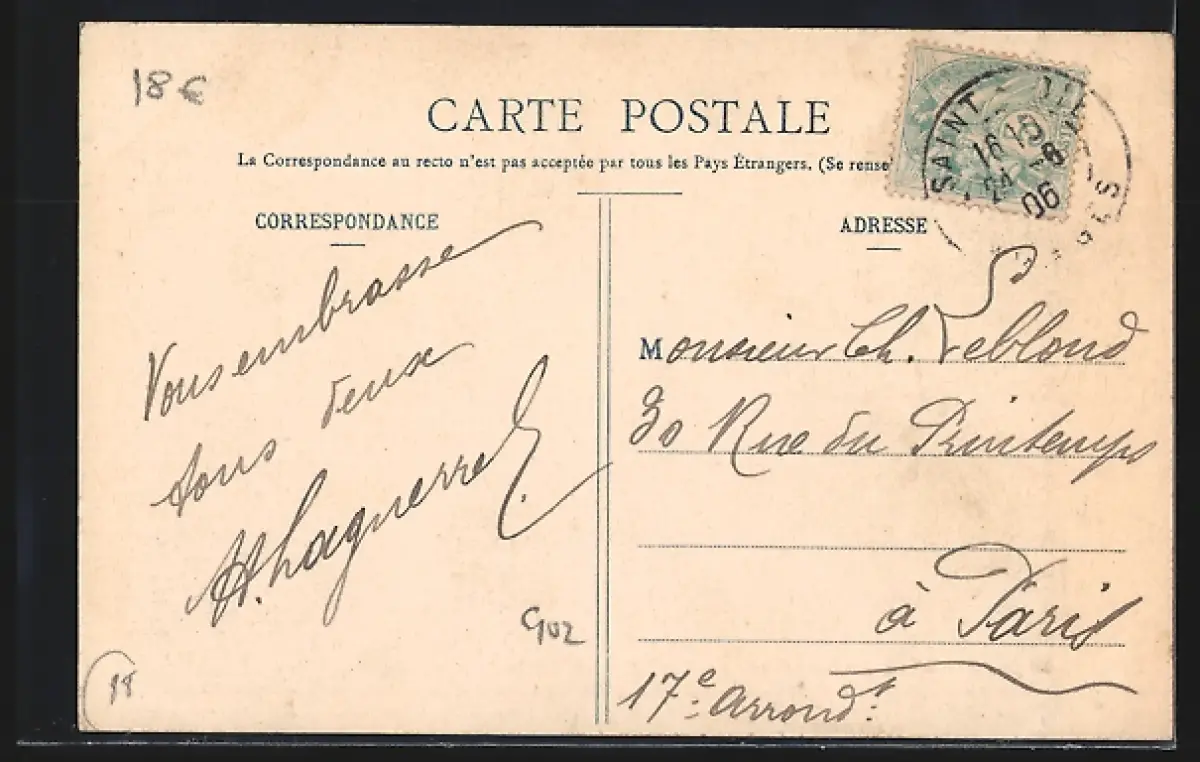 18€
CARTE POSTALE
La Correspondance au recto n'est pas acceptée par tous les Pays Étrangers. (Se rense
CORRESPONDANCE
ADRESSE
SAINT
16 10
24 -8
06
Vous embrasse
tous deux
H. Laguerre
Monsieur Ch. Leblond
30 Rue du Printemps
à Paris
17e arrondt
18